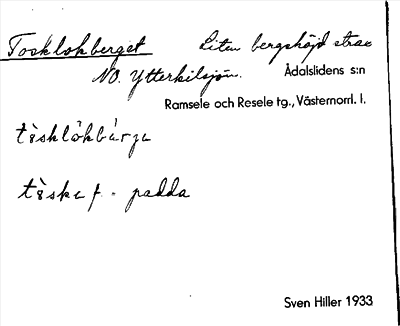 Tosklokberget Liten bergshöjd strax
NO. Ytterkilsjön. Ådalslidens s:n
Ramsele och Resele tg., Västernorrl. l.
tòsklòkbárʒa
tòska f. - padda
Sven Hiller 1933